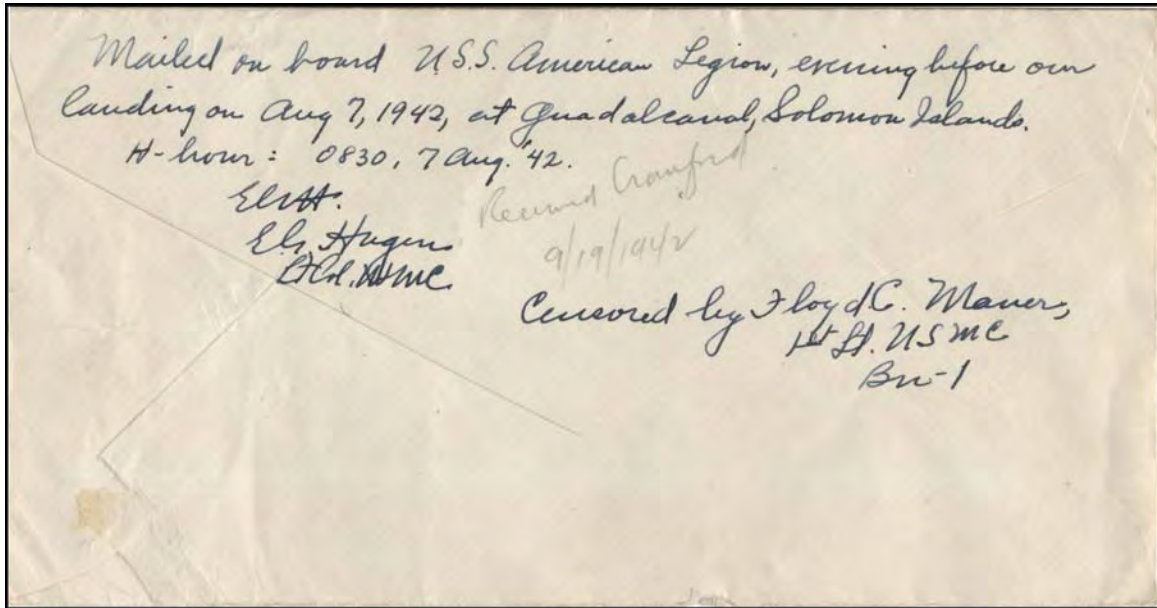 Mailed on board U.S.S. American Legion, evening before our
landing on Aug 7, 1942, at Guadalcanal, Solomon Islands.
H-hour: 0830, 7 Aug. '42.
Received Crawford
9/19/1942
Lt Col. USMC
Censored by Floyd C. Maner,
1st Lt. USMC
Bn-1